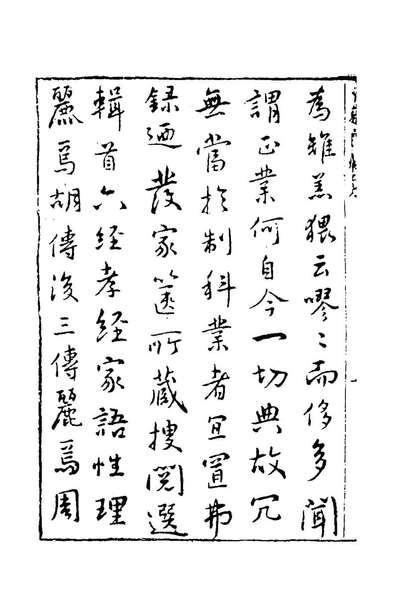 為雉羔猥云嘐〻而侈多聞
謂正業何自今一切典故冗
無當於制科業者宜置弗
録廼發家篋所藏搜閱選
輯首六經孝經家語性理
麗焉胡傳後三傳麗焉周